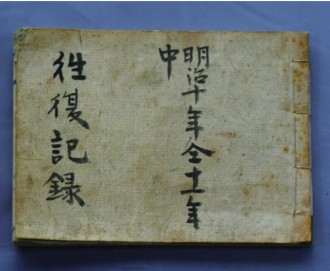 明治十年仝十一年
中
徃復記録